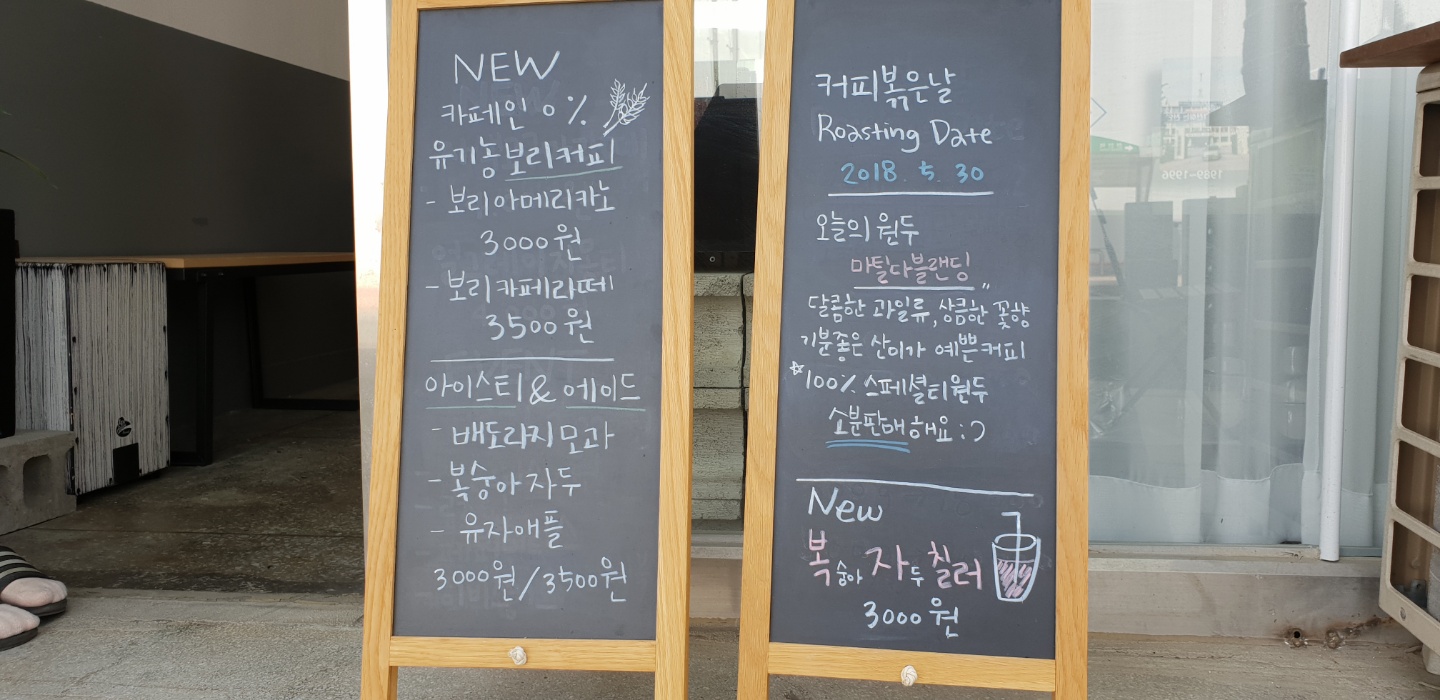 NEW
카페인 0%
유기농보리커피
- 보리아메리카노
3000원
- 보리카페라떼
3500원
아이스티 & 에이드
- 배도라지모과
- 복숭아자두
- 유자애플
3000원/3500원
커피볶은날
Roasting Date
2018. 5. 30
오늘의 원두
마틸다블랜딩"
달콤한 과일류, 상큼한 꽃향
기분좋은 산미가 예쁜커피
☆100% 스페셜티원두
소분판매해요 :)
New
복숭아자두칠러
3000원
1989-1996